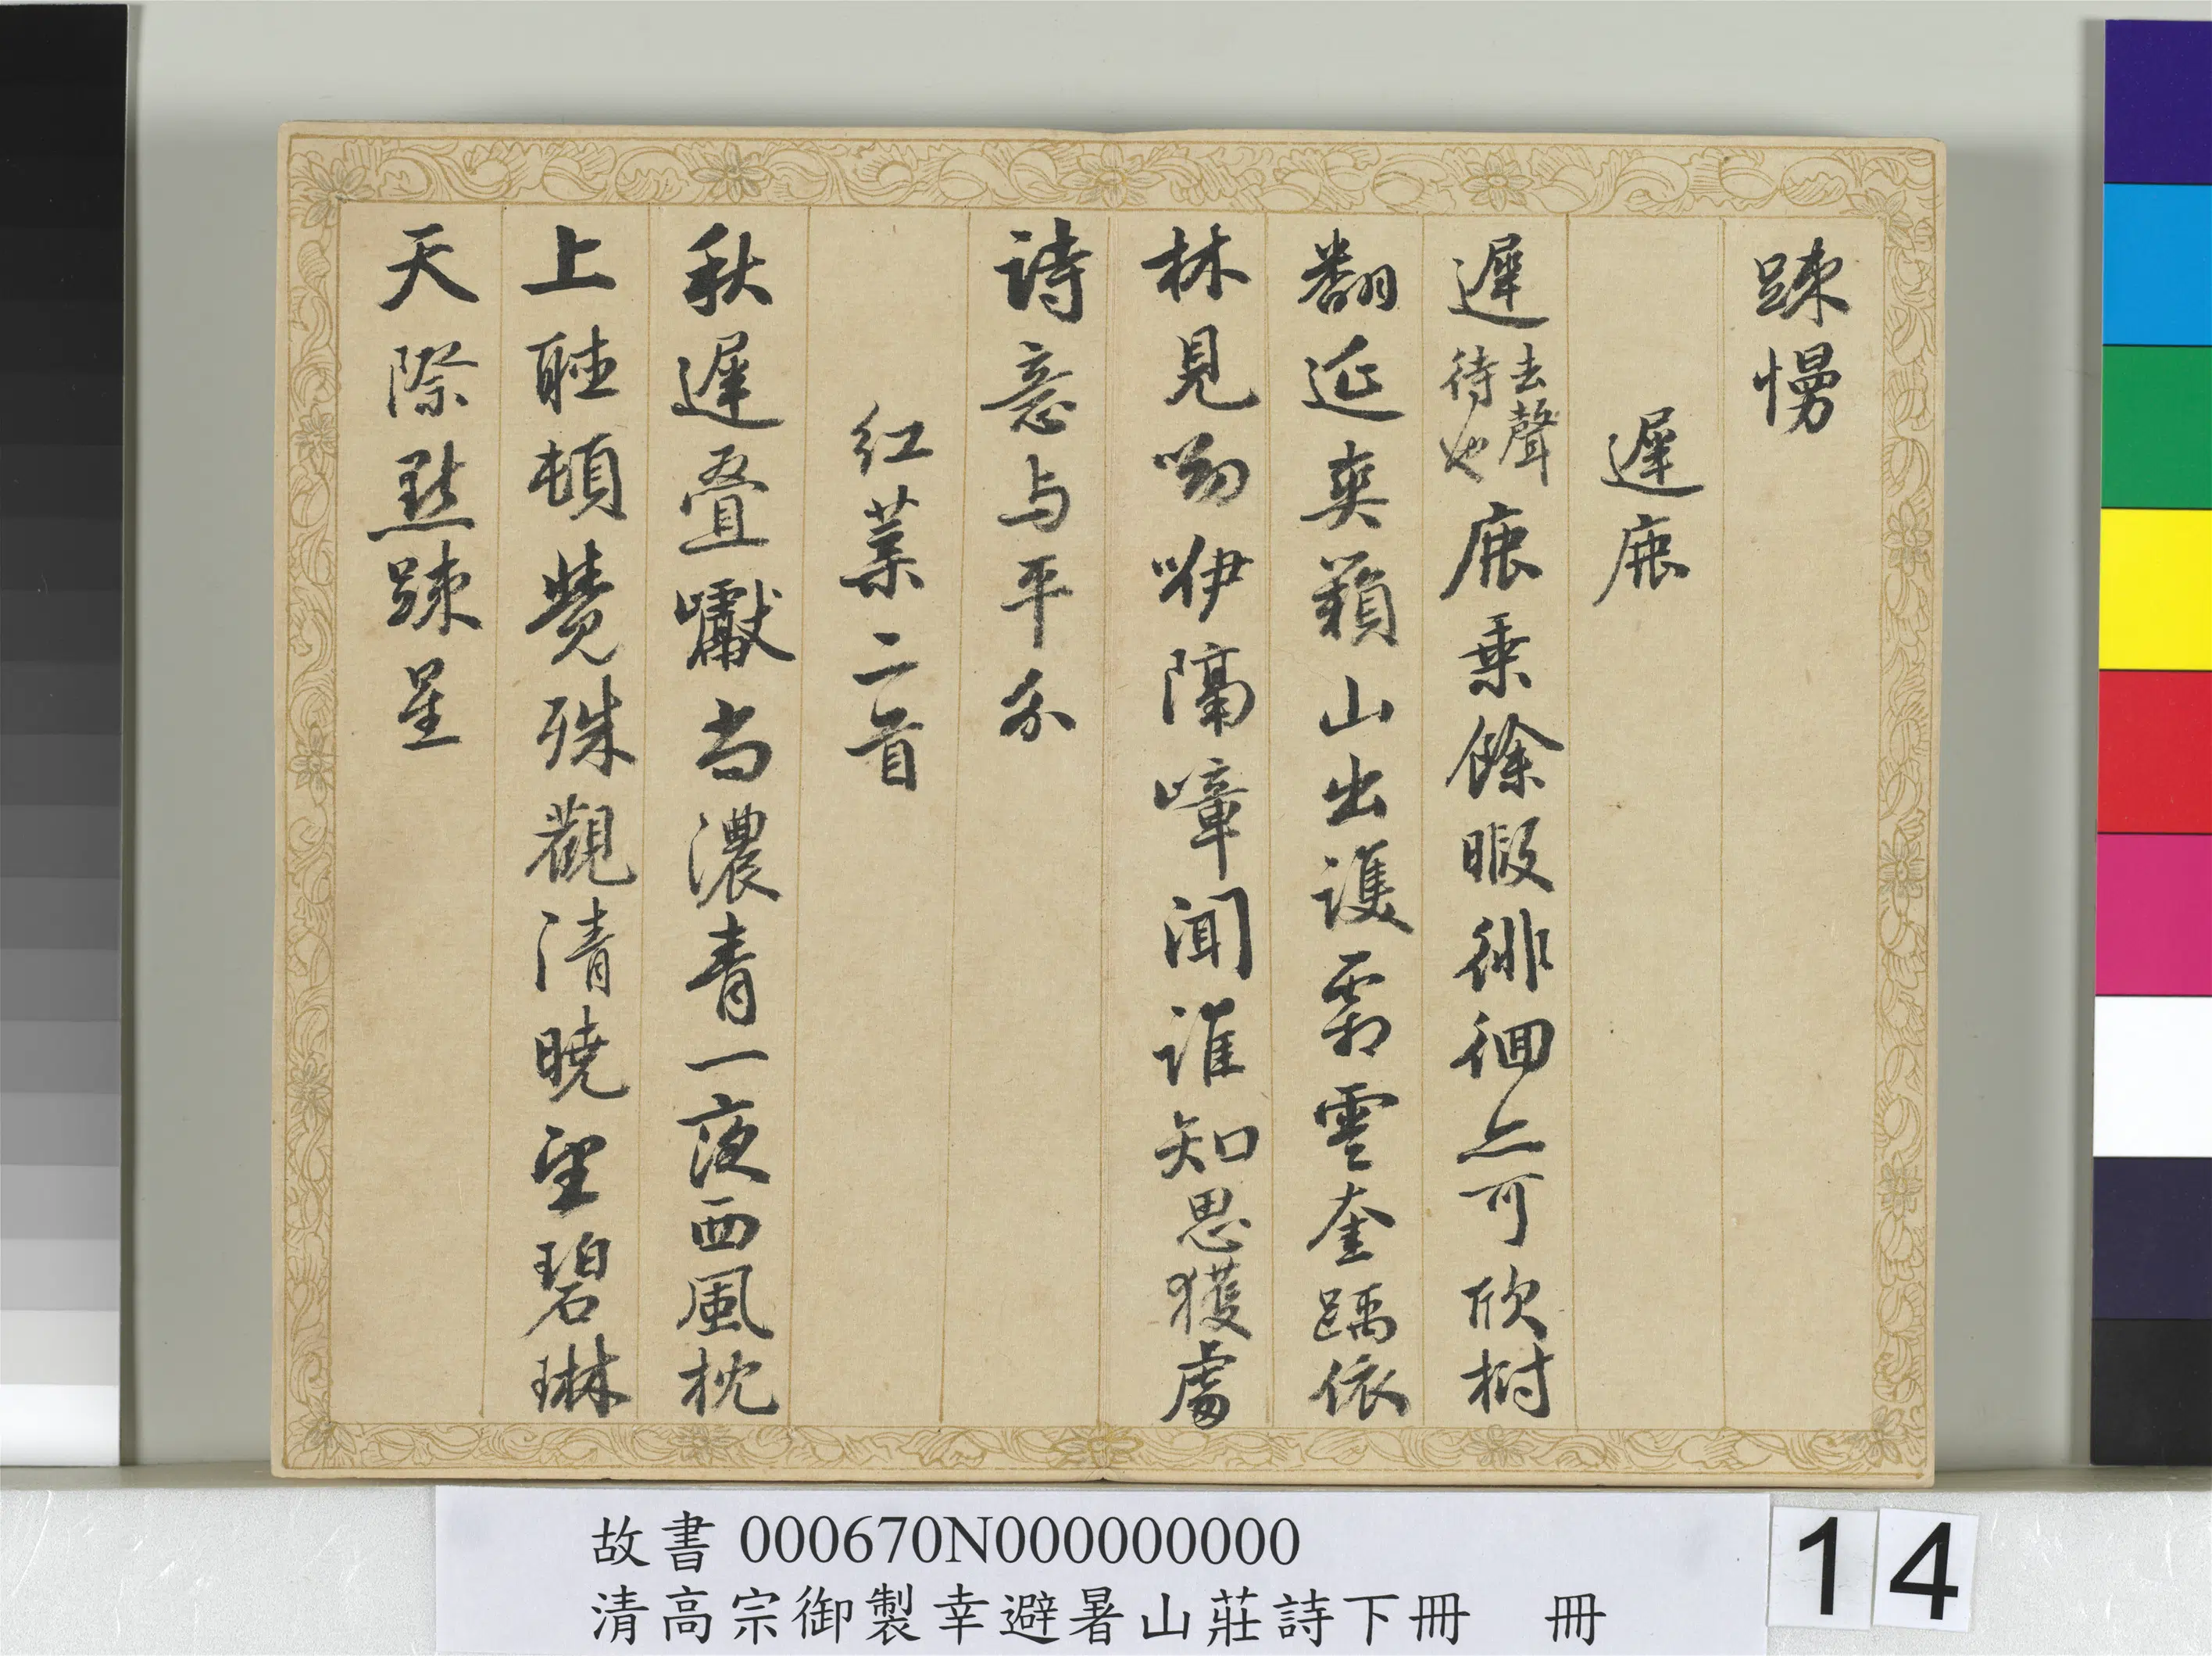 踈慢
遲鹿
遲去聲待也鹿乗餘暇徘徊亦可欣樹
翻延爽籟山出護霜雲奎踽依
林見呦咿隔嶂聞誰知思獲處
詩意与平分
紅葉二首
秋遲疊巘尚濃青一夜西風枕
上聽頓覺殊觀清曉望碧琳
天際點踈星
故書 000670N000000000
清高宗御製幸避暑山莊詩下冊 冊
14